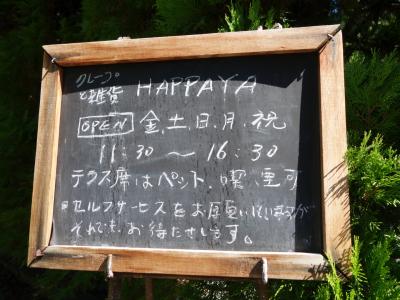 クレープ
と雑貨 HAPPAYA
OPEN 金.土.日.月.祝
11:30 〜 16:30
テラス席はペット.喫煙可
※セルフサービスをお願いしていますが
それでも、お待たせします。